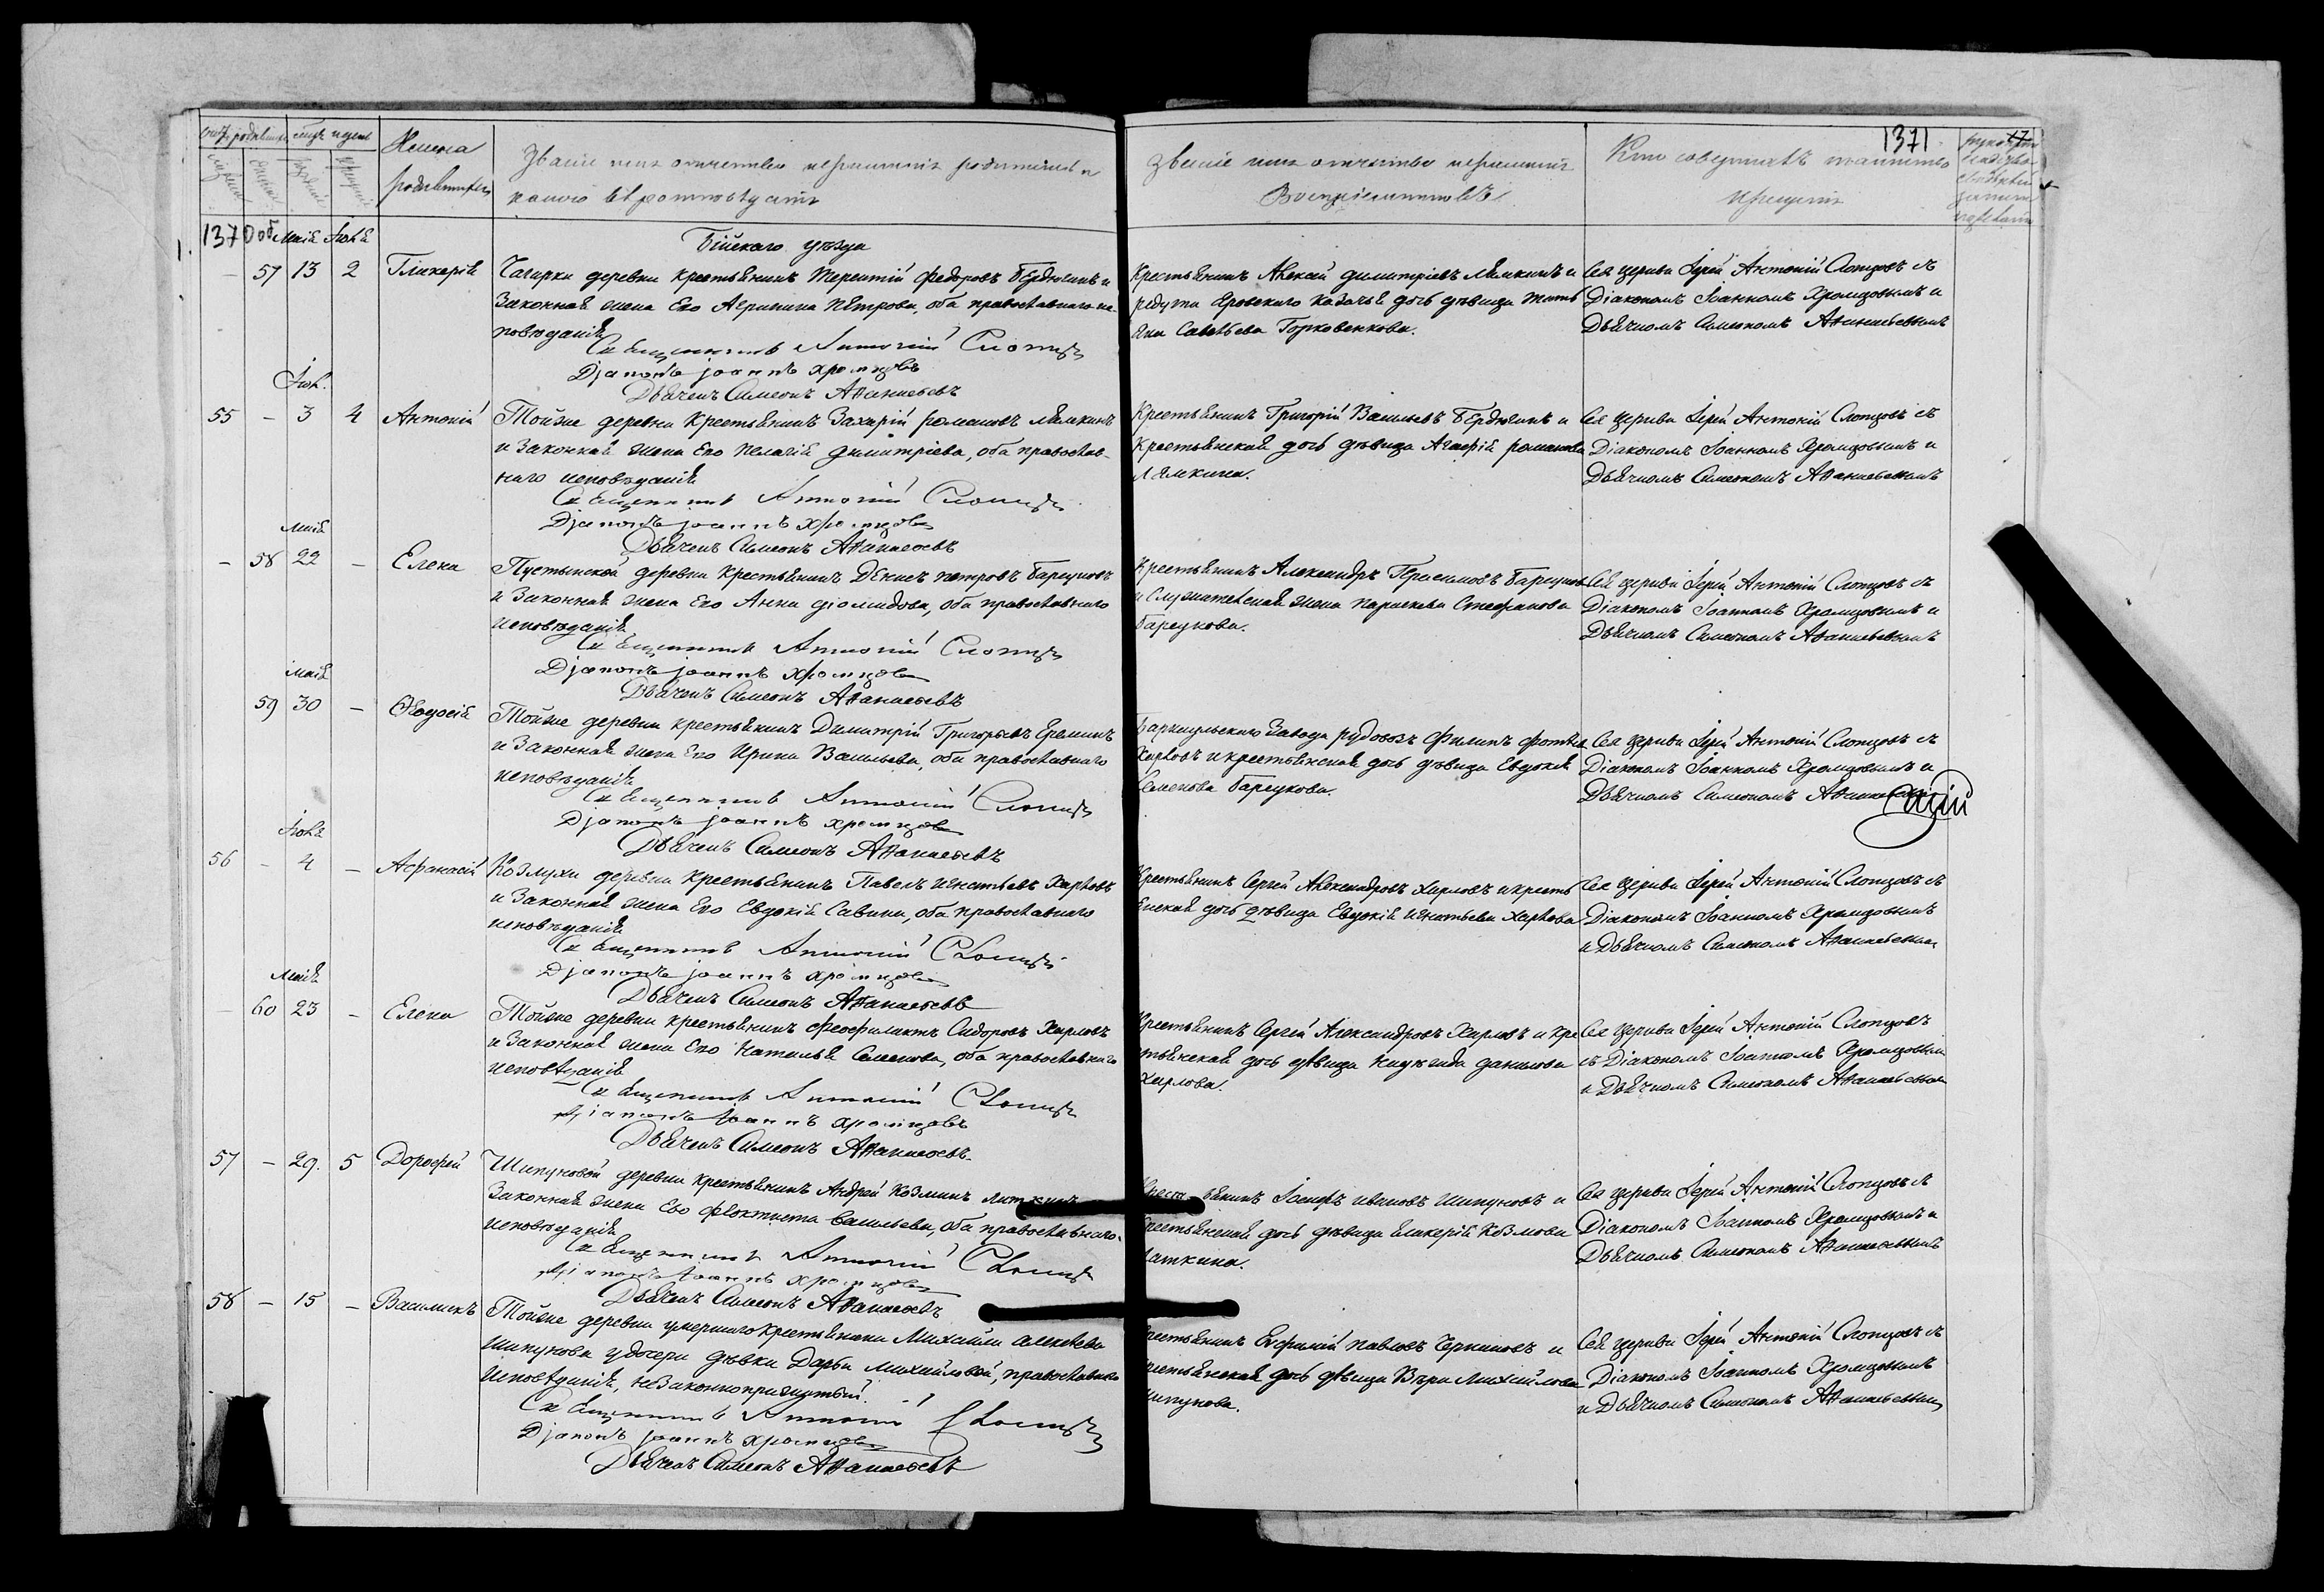 Имена
родившихся
Званіе имя отчество и фамилія родителей и
какого вѣроисповѣданія
Званіе имя отчество и фамилія
Воспріемниковъ
Кто совершалъ таинство
крещенія
1371
1370 об Маія Іюня
Бійскаго уѣзда
— 57 13 2 Гликерія
Чагирки деревни крестьянинъ Терентій Федоровъ Бердюгинъ и
Законная жена Его Агрипина Петрова, оба православнаго ис-
повѣданія
Священникъ Антоній Слопцовъ
Діаконъ Іоаннъ Хромцовъ
Дьячекъ Симеонъ Афанасьевъ
Крестьянинъ Алексѣй Димитріевъ Лямкинъ и
редута казачья дочь дѣвица Тать
яна Савельева Горковенкова.
Сея церкви Іерей Антоній Слопцовъ съ
Діакономъ Іоанномъ Хромцовымъ и
Дьячкомъ Симеономъ Афанасьевымъ
Іюн.
55 — 3 4 Антоній
Тойже деревни Крестьянинъ Захарій Романовъ Лямкинъ
и Законная жена Его Пелагія Димитріева, оба православ-
наго исповѣданія
Священникъ Антоній Слопцовъ
Діаконъ Іоаннъ Хромцовъ
Дьячекъ Симеонъ Афанасьевъ
Крестьянинъ Григорій Васильевъ Бердюгинъ и
Крестьянская дочь дѣвица Агафія Романова
Лямкина.
Сея церкви Іерей Антоній Слопцовъ съ
Діакономъ Іоанномъ Хромцовымъ и
Дьячкомъ Симеономъ Афанасьевымъ
Маія
— 58 22 — Елена
Пустынской деревни Крестьянинъ Денисъ Петровъ Барсуковъ
и Законная жена Его Анна Діомидова, оба православнаго
исповѣданія
Священникъ Антоній Слопцовъ
Діаконъ Іоаннъ Хромцовъ
Дьячекъ Симеонъ Афанасьевъ
Крестьянинъ Александръ Герасимовъ Барсуковъ
и Служительская жена Параскева Стефанова
Барсукова.
Сея церкви Іерей Антоній Слопцовъ съ
Діакономъ Іоанномъ Хромцовымъ и
Дьячкомъ Симеономъ Афанасьевымъ
Маія
59 30 — Феодосія
Тойже деревни крестьянинъ Димитрій Григорьевъ Ереминъ
и Законная жена Его Ирина Васильева, оба православнаго
исповѣданія
Священникъ Антоній Слопцовъ
Діаконъ Іоаннъ Хромцовъ
Дьячекъ Симеонъ Афанасьевъ
Барнаульскаго Завода рудовозъ Филипъ
Харловъ и крестьянская дочь дѣвица Евдокія
Семенова Барсукова.
Сея церкви Іерей Антоній Слопцовъ съ
Діакономъ Іоанномъ Хромцовымъ и
Дьячкомъ Симеономъ
Іюня
56 — 4 — Афанасій
Козлухи деревни Крестьянинъ Павелъ Игнатьевъ Харловъ
и Законная жена Его Евдокія Савина, оба православнаго
исповѣданія
Священникъ Антоній Слопцовъ
Діаконъ Іоаннъ Хромцовъ
Дьячекъ Симеонъ Афанасьевъ
Крестьянинъ Сергей Александровъ Харловъ и кресть
янская дочь дѣвица Евдокія Игнатьева Харлова
Сея церкви Іерей Антоній Слопцовъ съ
Діакономъ Іоанномъ Хромцовымъ
и Дьячкомъ Симеономъ Афанасьевымъ
Маія
— 60 23 — Елена
Тойже деревни крестьянинъ Феофилактъ Сидоровъ Харловъ
и Законная жена Его Наталья Семенова, оба православнаго
исповѣданія
Священникъ Антоній Слопцовъ
Діаконъ Іоаннъ Хромцовъ
Дьячекъ Симеонъ Афанасьевъ
Крестьянинъ Сергей Александровъ Харловъ и кре
стьянская дочь дѣвица Данилова
Харлова.
Сея церкви Іерей Антоній Слопцовъ
съ Діакономъ Іоанномъ Хромцовымъ
и Дьячкомъ Симеономъ Афанасьевымъ
57 — 29. 5 Дорофей
Шипуновой деревни крестьянинъ Андрей Козминъ
Законная жена Его Феоктиста Васильева, оба православнаго
исповѣданія
Священникъ Антоній Слопцовъ
Діаконъ Іоаннъ Хромцовъ
Дьячекъ Симеонъ Афанасьевъ
Крестьянинъ Іосифъ Ивановъ Шипуновъ и
Крестьянская дочь дѣвица Гликерія Козмова
Сея церкви Іерей Антоній Слопцовъ съ
Діакономъ Іоанномъ Хромцовымъ и
Дьячкомъ Симеономъ Афанасьевымъ
58 — 15 — Василискъ
Тойже деревни умершаго крестьянина Михайла Алексѣева
Шипунова у дочери дѣвки Дарьи Михайловой, православнаго
исповѣданія, незаконноприжитый.
Священникъ Антоній Слопцовъ
Діаконъ Іоаннъ Хромцовъ
Дьячекъ Симеонъ Афанасьевъ
Крестьянинъ Евфимій Павловъ и
Крестьянская дочь дѣвица Вѣра Михайлова
Шипунова.
Сея церкви Іерей Антоній Слопцовъ съ
Діакономъ Іоанномъ Хромцовымъ
и Дьячкомъ Симеономъ Афанасьевымъ